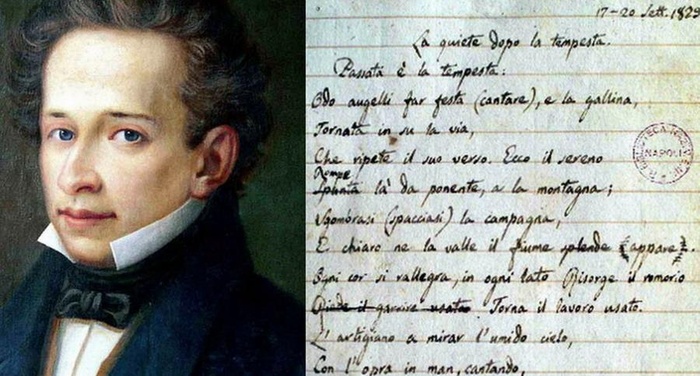 17-20 Sett. 1829
La quiete dopo la tempesta.
Passata è la tempesta:
Odo augelli far festa (cantare), e la gallina,
Tornata in su la via,
Che ripete il suo verso. Ecco il sereno
Rompe
Spunta là da ponente, a la montagna;
Sgombrasi (spacciasi) la campagna,
E chiaro ne la valle il fiume splende (appare).
Ogni cor si rallegra, in ogni lato Risorge il romorio
il garrire usato. Torna il lavoro usato.
L'artigiano a mirar l'umido cielo,
Con l'opra in man, cantando,
NAPOLI